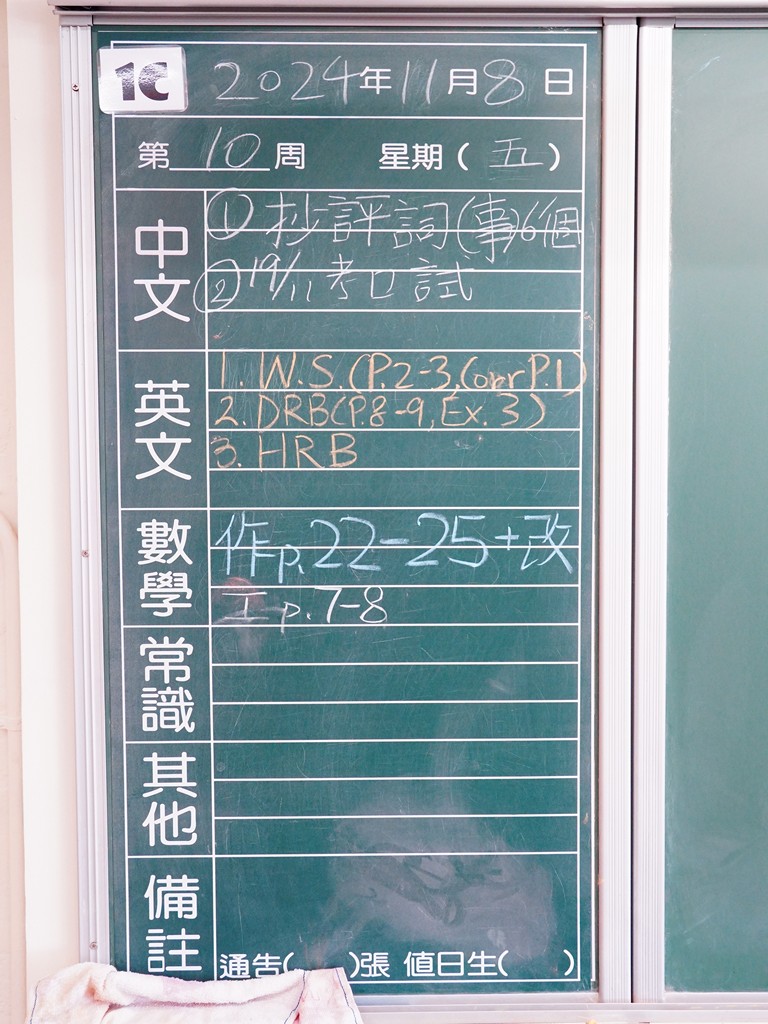 1C 2024年11月8日
第10周 星期(五)
中文
① 抄評詞(事)6個
② 19/11考口試
英文
1. W.S.(P.2-3,Corr P.1)
2. DRB(P.8-9, Ex.3)
3. HRB
數學
作p.22-25+改
工p.7-8
常識
其他
備註
通告( )張 值日生( )